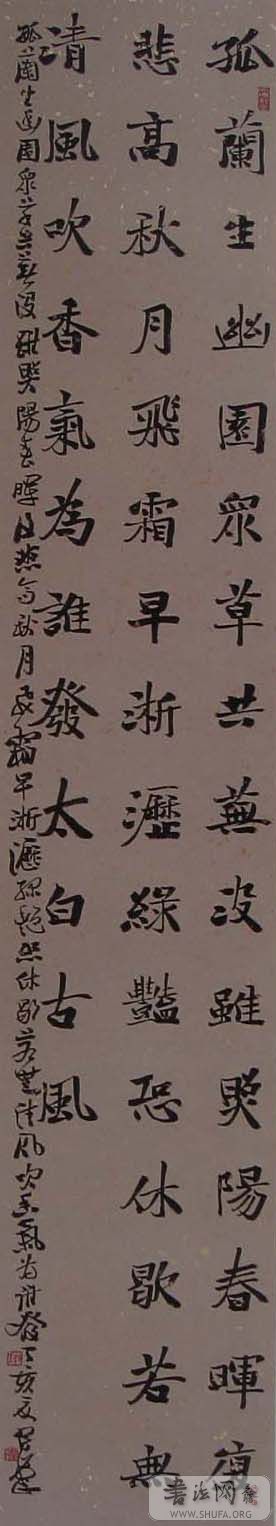 孤蘭生幽園眾草共蕪沒雖照陽春暉復
悲高秋月飛霜早淅瀝綠豔恐休歇若無
清風吹香氣為誰發太白古風
孤蘭生幽園眾草共蕪沒雖照陽春暉復悲高秋月飛霜早淅瀝綠艷恐休歇若無清風吹香氣為誰發丁亥夏
書法网
WWW.SHUFA.ORG